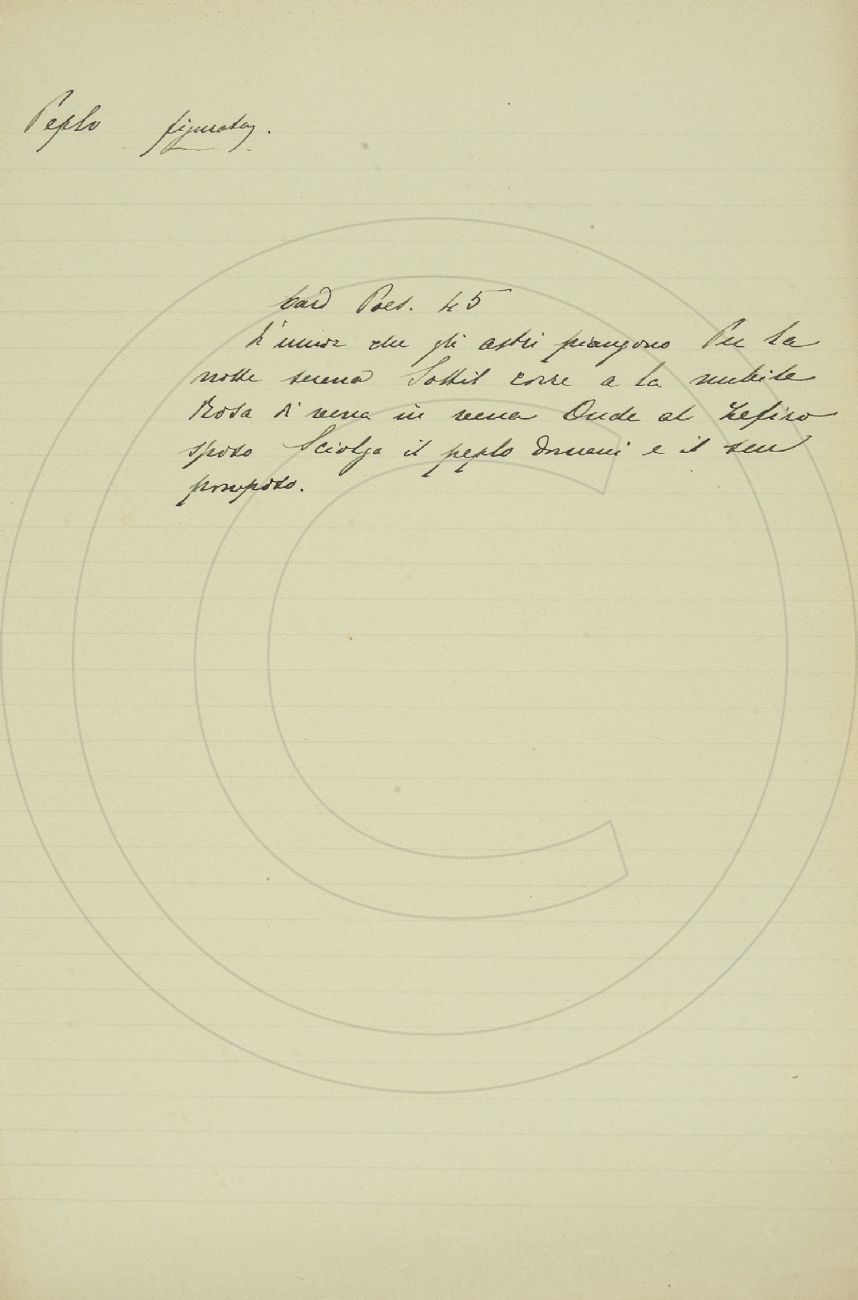 Peplo figurato.
Card Poes. 45
L'umor che gli astri piangono Per la
notte serena Sottil corre a la nubile
Rosa di vena in vena Onde al Zefiro
sposo Sciolga il peplo domani e il sen
pomposo.